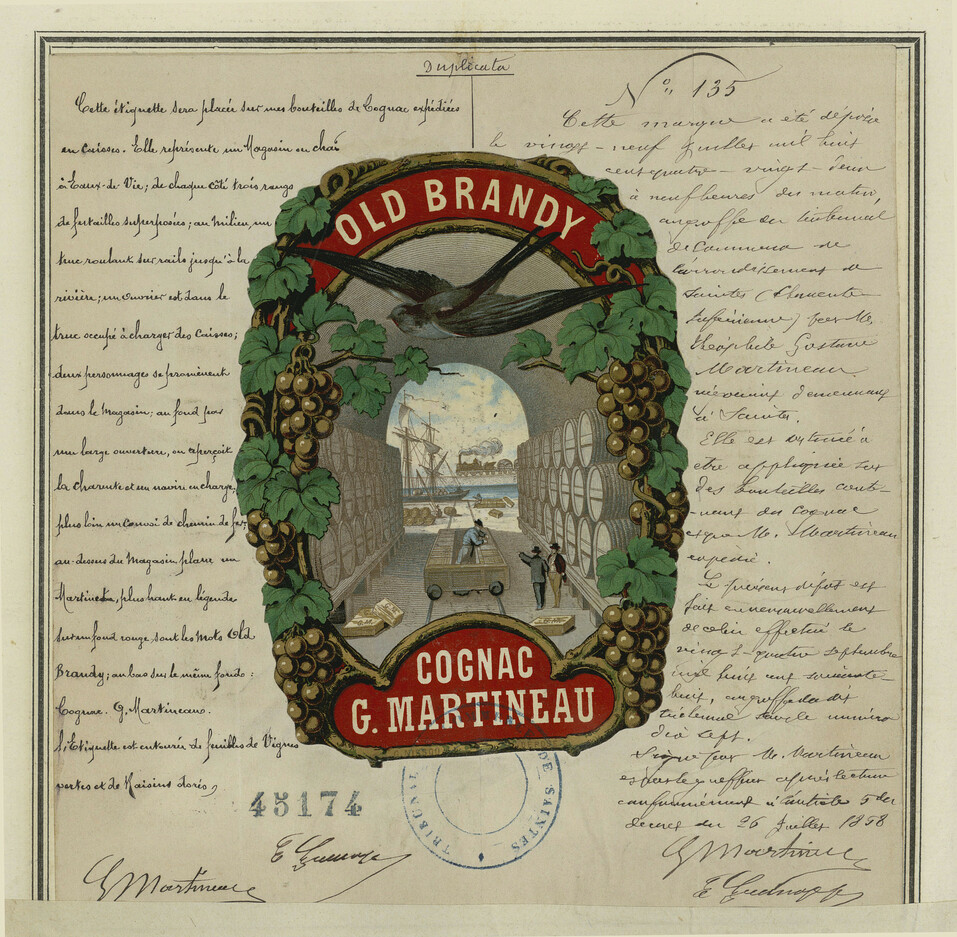 Duplicata
Cette étiquette sera placée sur mes bouteilles de Cognac expédiées
en Caisses. Elle représente un Magasin en chai
à Eaux-de-Vie; de chaque côté trois rangs
de futailles superposées; au Milieu, un
truc roulant sur rails jusqu'à la
rivière; un Ouvrier est dans le
truc occupé à charger des Caisses;
deux personnages se promènent
dans le Magasin; au fond par
une large ouverture, on aperçoit
la Charente et un navire en charge,
plus loin un Convoi de chemin de fer,
au-dessus du Magasin plane un
Martinet, plus haut en légende
sur un fond rouge, sont les Mots Old
Brandy; au bas sur le même fond:
Cognac. G. Martineau.
L'Etiquette est entourée de feuilles de Vignes
vertes et de Raisins dorés,
45174
G Martineau
OLD BRANDY
COGNAC
G. MARTINEAU
TRIBUNAL DE SAINTES
No. 135
Cette marque a été déposée
le vingt-neuf Juillet mil huit
cent quatre-vingt-deux
à neuf heures du matin,
au greffe du tribunal
de Commerce de
l'arrondissement de
Saintes (Charente
Inférieure) par M.
Théophile Gustave
Martineau
négociant demeurant
à Saintes.
Elle est destinée à
être appliquée sur
des bouteilles conte-
nant du Cognac
que M. Martineau
expédie.
Le présent dépôt est
fait en renouvellement
de celui effectué le
vingt-quatre septembre
mil huit cent soixante-
huit, au greffe du dit
tribunal sous le numéro
dix sept.
Signé par M. Martineau
et par le greffier après lecture
conformément à l'article 5 du
décret du 26 Juillet 1858
G Martineau